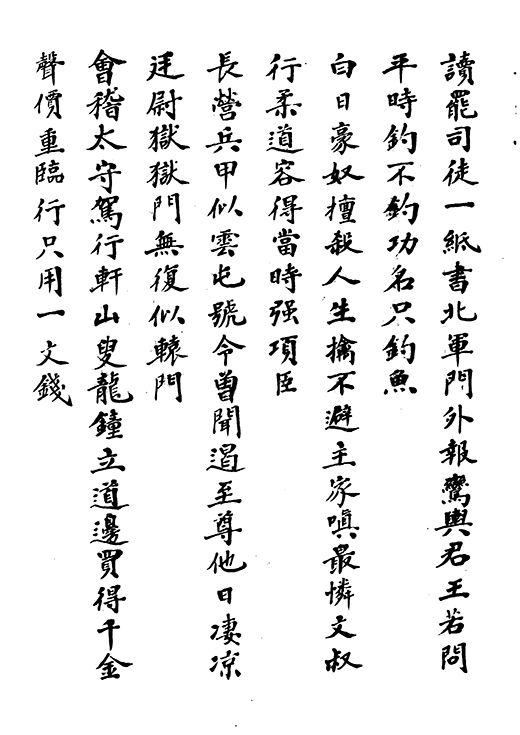 讀罷司徒一紙書北軍門外報鸞輿君王若問
平時釣不釣功名只釣魚
白日豪奴擅殺人生擒不避主家嗔最憐文叔
行柔道容得當時强項臣
長營兵甲似雲屯號令曽聞遏至尊他日凄凉
廷尉獄獄門無復似轅門
會稽太守駕行軒山叟龍鐘立道邊買得千金
聲價重臨行只用一文錢